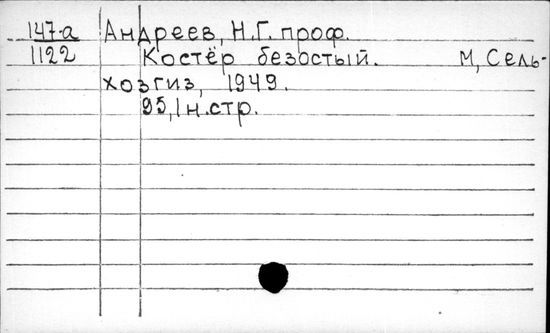 147-а Андреев, Н.Г. проф.
1122 Костёр безостый. М, Сель-
хозгиз, 1949.
95,1н.стр.